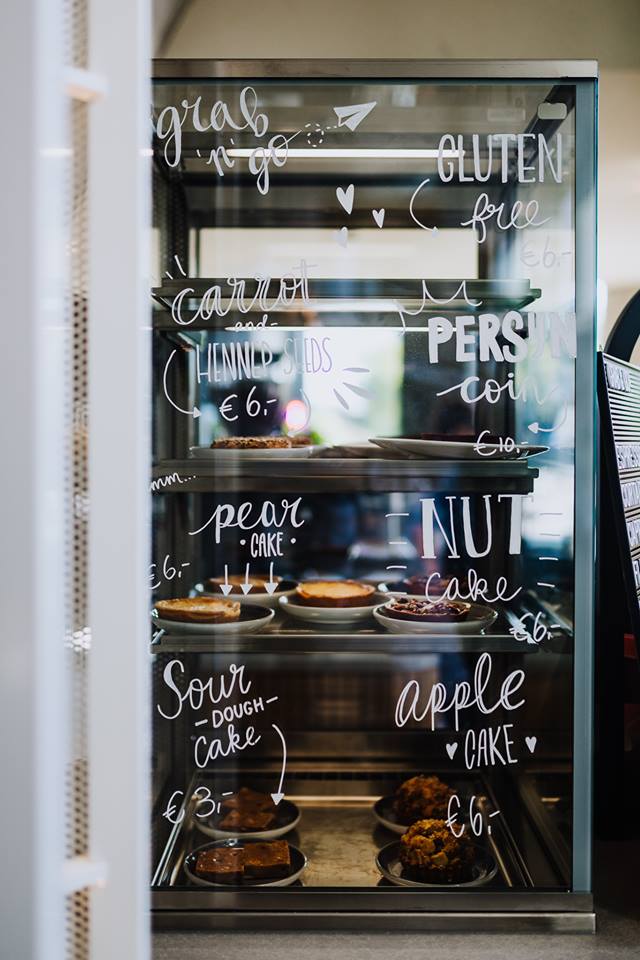 grab
'n' go
GLUTEN
free
€6,-
carrot
-and-
HENNEP SEEDS
€6,-
PERSIJN
coin
€10,-
mm...
pear
•CAKE•
€6,-
NUT
cake
€6,-
Sour
-DOUGH-
cake
€3,-
apple
CAKE
€6,-